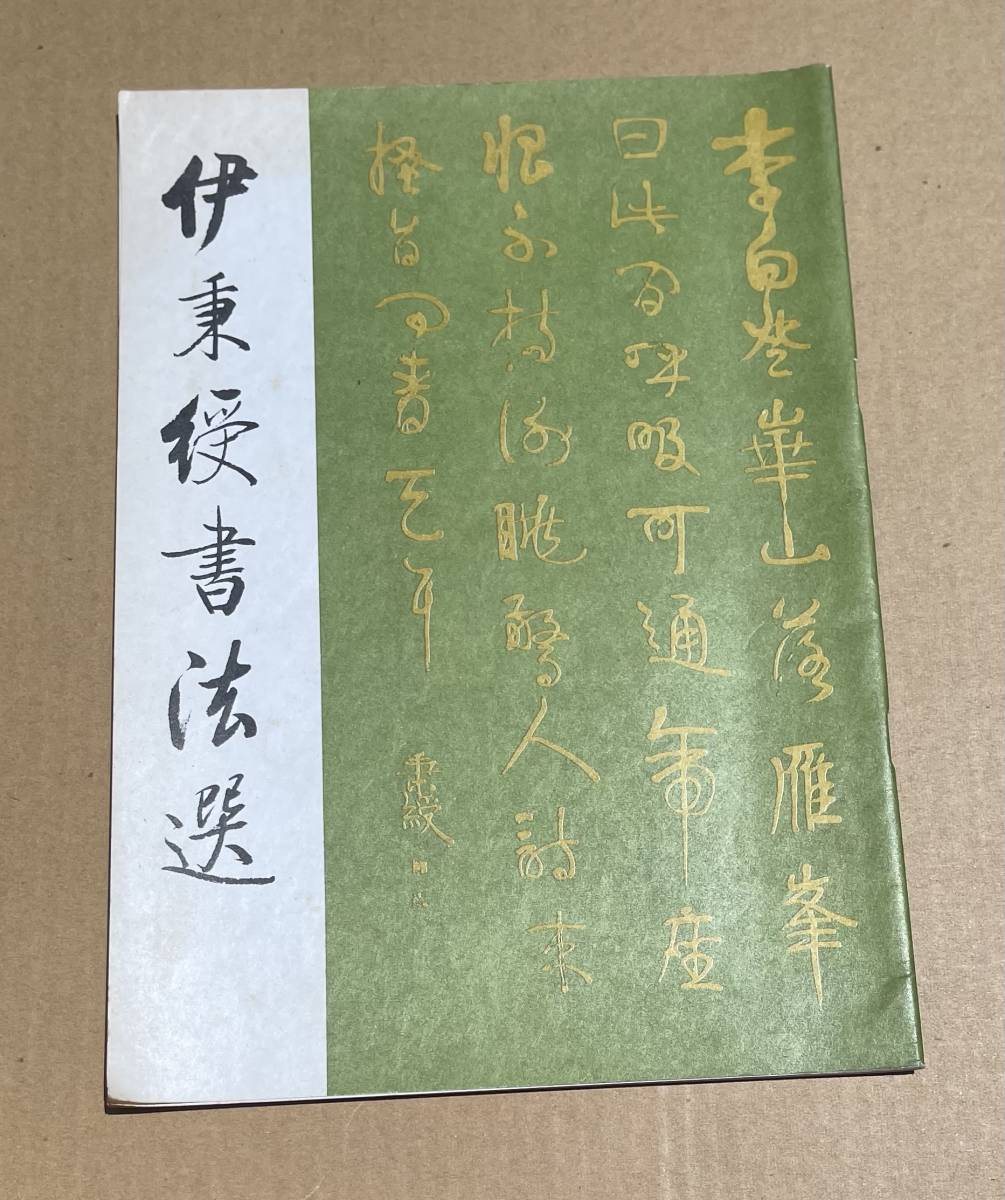 伊秉綬書法選
李白登華山落雁峯
曰此間呼吸可通帝座
恨不謝眺驚人詩來
搔首問青天耳
秉綬